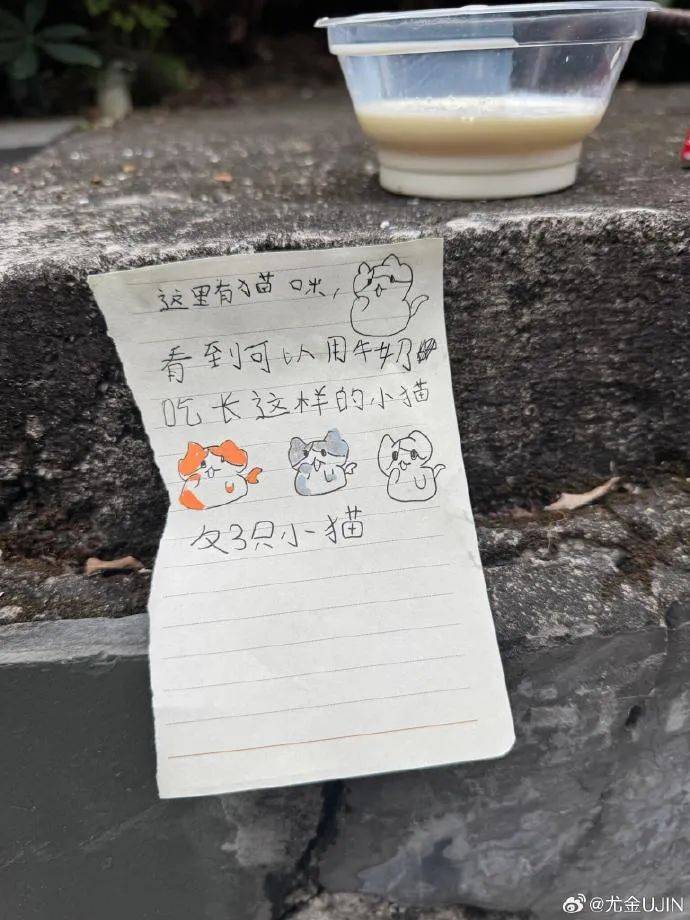 这里有猫咪，
看到可以用牛奶
吃长这样的小猫
3只小猫
@尤金UJIN